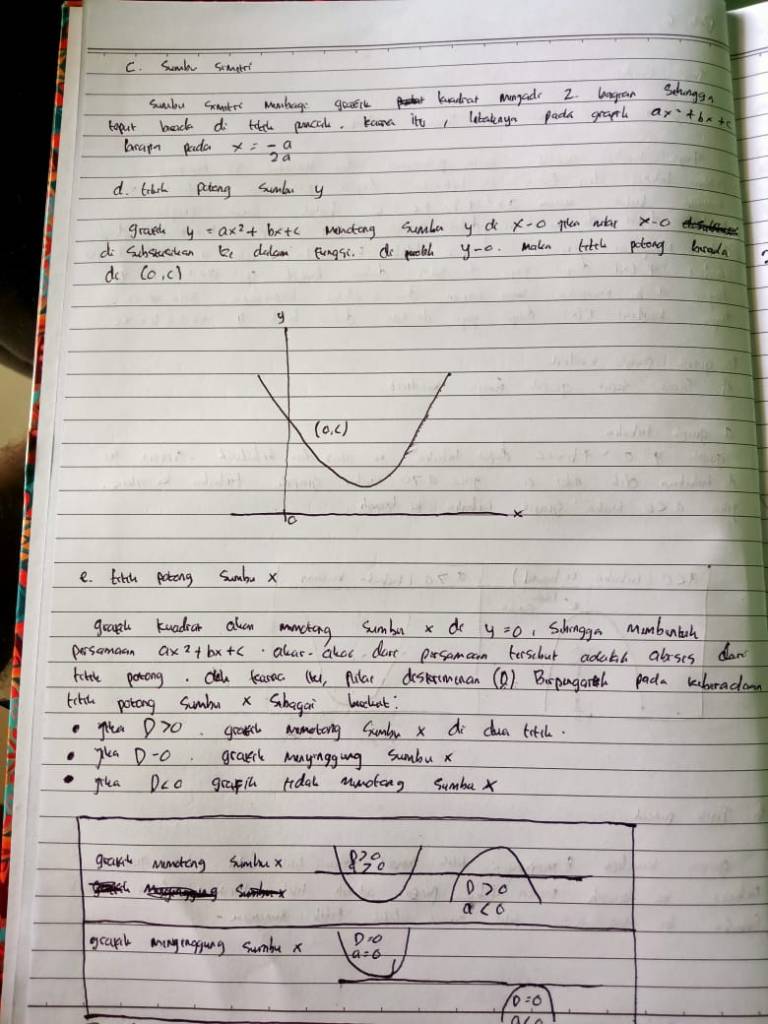 C. Sumbu Simetri
Sumbu Simetri Membagi grafik kuadrat menjadi 2. bagian Sehingga
tepat berada di titik puncak. karna itu, letaknya pada grafik ax² + bx + c
pada x = -a/2a
d. titik potong Sumbu y
grafik y = ax² + bx + c Memotong Sumbu y di x-0 jika nilai x-0
di Substusikan ke dalam fungsi. di peroleh y-0. maka titik potong berada
di (0,c)
y
(0,c)
0
x
e. titik potong Sumbu x
grafik kuadrat akan memotong Sumbu x di y = 0, Sehingga Membentuk
persamaan ax² + bx + c . akar-akar dari persamaan tersebut adalah absis dari
titik potong. Oleh karna itu, nilai deskriminan (D) Berpengaruh pada keberadaan
titik potong Sumbu x Sebagai berikut:
• jika D > 0 . grafik memotong Sumbu x di dua titik.
• jika D - 0 . grafik menyinggung Sumbu x
• jika D < 0 grafik tidak memotong Sumbu x
grafik memotong Sumbu x
D > 0
a > 0
D > 0
a < 0
grafik menyinggung Sumbu x
D = 0
a = 0
D = 0
a < 0